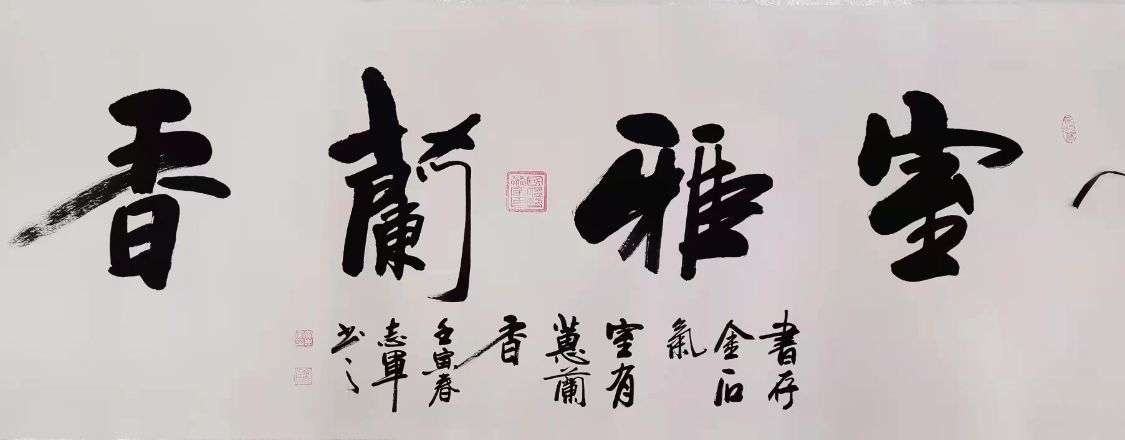 室雅蘭香
書存
金石
氣
室有
蕙蘭
香
壬寅春
志軍
书之